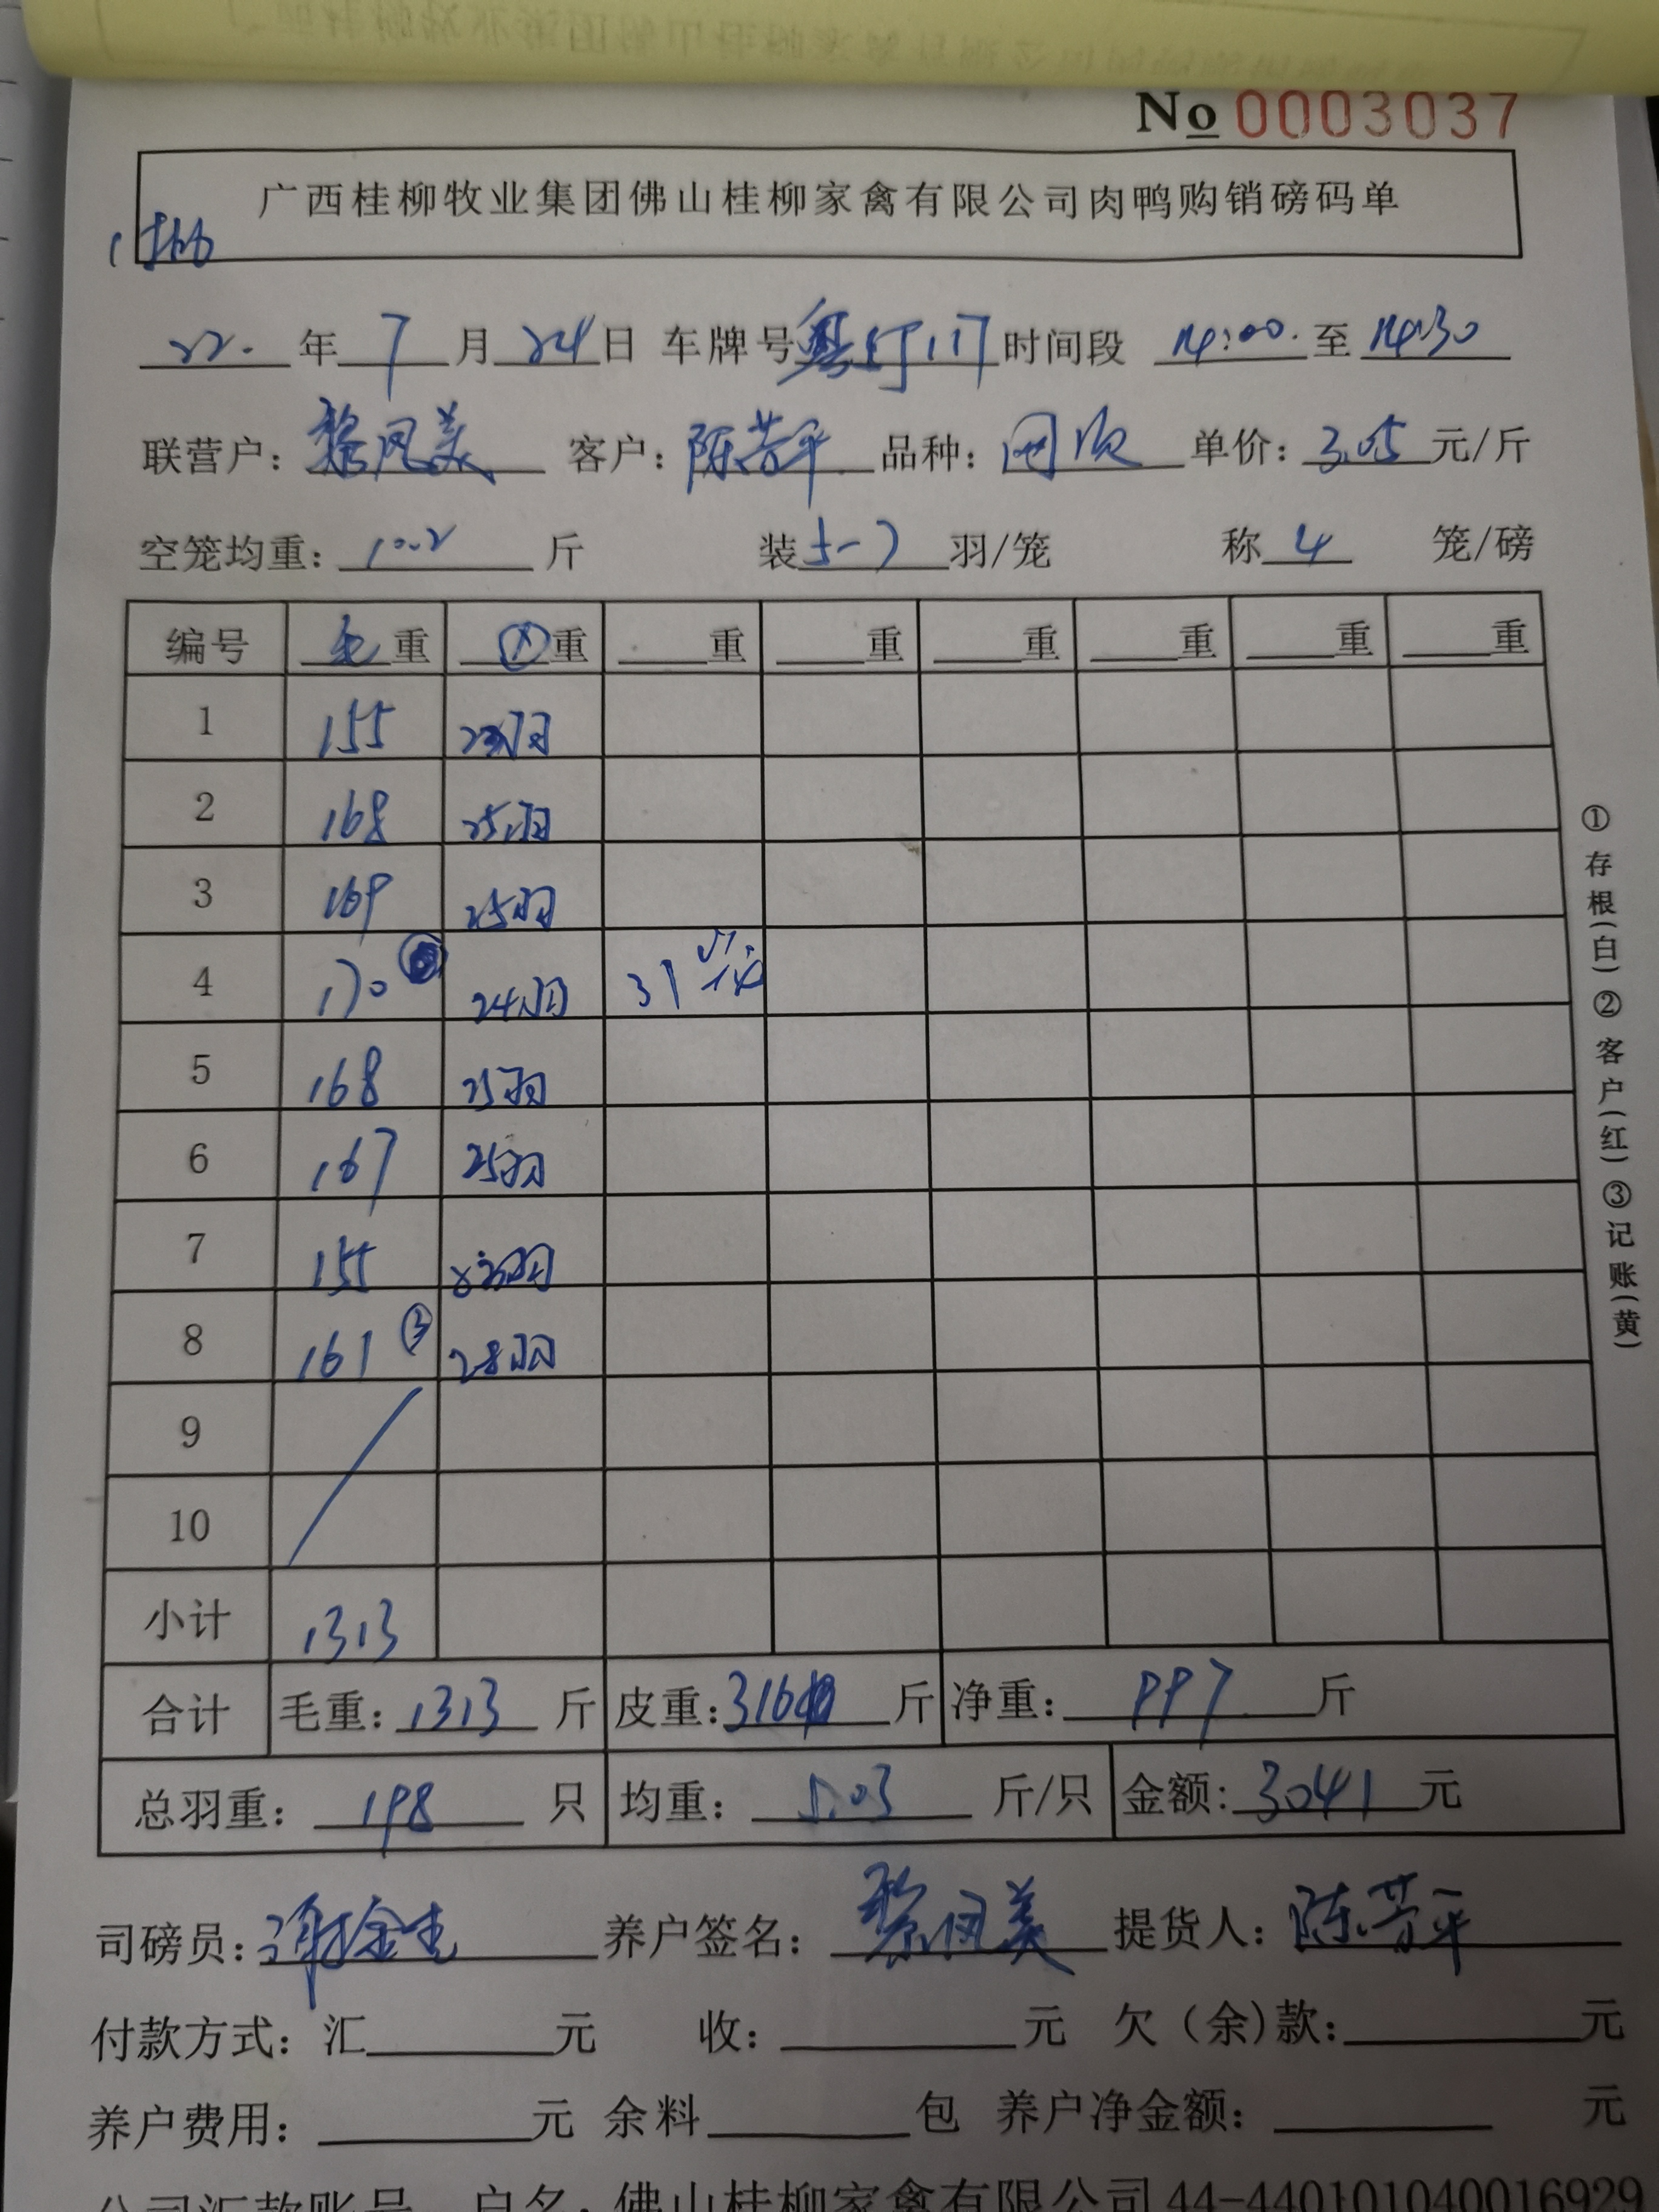 No 0003037
广西桂柳牧业集团佛山桂柳家禽有限公司肉鸭购销磅码单
22. 年 7 月 24 日 车牌号 时间段 14:00. 至 14:30
联营户: 黎凤美 客户: 陈芳平 品种: 单价: 3.05 元/斤
空笼均重: 10.2 斤 装 5-7 羽/笼 称 4 笼/磅
编号 毛重 重 重 重 重 重 重 重
1 155
2 168 25羽
3 169 25羽
4 170 24羽 31
5 168 25羽
6 167 25羽
7 155
8 161 ③ 28羽
9
10
小计 1313
合计 毛重: 1313 斤 皮重: 316 斤 净重: 997 斤
总羽重: 198 只 均重: 5.03 斤/只 金额: 3041 元
司磅员: 谢金生 养户签名: 黎凤美 提货人: 陈芳平
付款方式: 汇 元 收: 元 欠(余)款: 元
养户费用: 元 余料 包 养户净金额: 元
公司汇款账号 户名: 佛山桂柳家禽有限公司 44-440101040016929
①存根(白)②客户(红)③记账(黄)